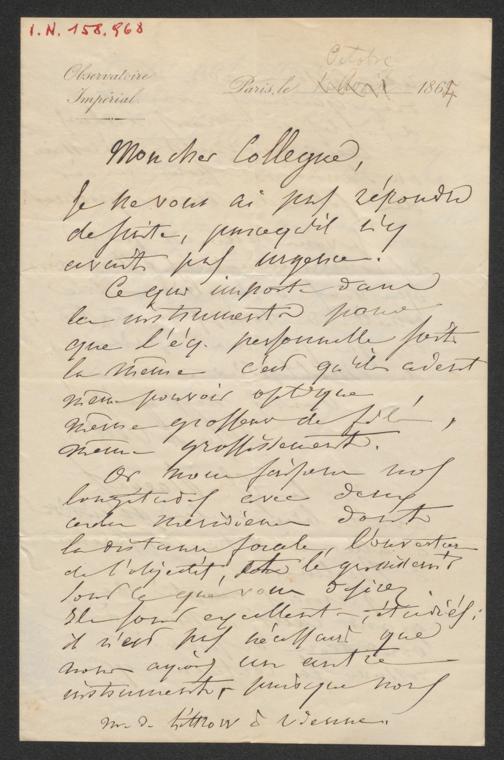 I.N. 158.968
Observatoire
Impérial.
Octobre
Paris, le 1864
Mon cher Collegue,
Je ne vous ai pas répondu
de suite, parcequ'il n'y
avait pas urgence.
Ce qui importe dans
les instruments pour
que l'éq. personnelle soit
la même c'est qu'ils aient
même pouvoir optique,
même grosseur de fils,
même grossissement.
Or nous faisons nos
longitudes avec deux
cercles méridiens dont
la distance focale, l'ouverture
de l'objectif, le grossissement
sont ce que vous désirez
Ils sont excellents, étudiés;
il n'est pas nécessaire que
nous ayions un autre
instrument, puisque nous
M. de Littrow à Vienne.